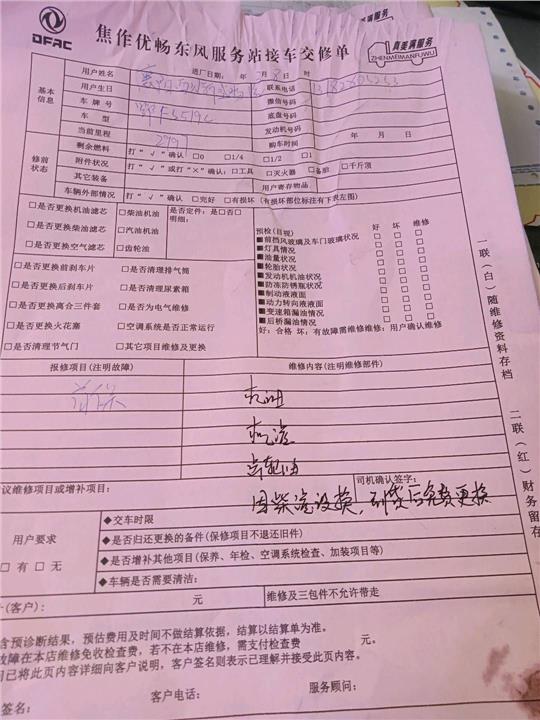 DFAC
焦作优畅东风服务站接车交修单
真美满服务
ZHENMEIMANFUWU
基本信息
用户姓名
进厂日期: 年 月 8 日 时
用户生日
联系电话
车牌号
微信号码
车型
底盘号码
当前里程 2797
发动机号码
购车时间 年 月 日
修前状态
剩余燃油 打“√”确认 □0 □1/4 □1/2 □1
附件状况 打“√”或打“×”确认:□工具 □灭火器 □备胎 □千斤顶
其它装备
用户寄存物品
车辆外部情况 打“√”确认 □完好 □有损坏(有损坏部位标注有下表左图)
□是否更换机油滤芯 □柴油机油 是否定件: 是□否□
□是否更换柴油滤芯 □汽油机油 明细:
□是否更换空气滤芯 □齿轮油
预检(目视) 好 坏 维修
■前挡风玻璃及车门玻璃状况 □ □ □
■灯具情况 □ □ □
■油量状况 □ □ □
■轮胎状况 □ □ □
■发动机机油状况 □ □ □
■防冻防锈瓶状况 □ □ □
■制动液液面 □ □ □
■动力转向液液面 □ □ □
■变速箱漏油情况 □ □ □
■后桥漏油情况 □ □ □
好:合格 坏:有故障需维修维修:用户确认维修
□是否更换前刹车片 □是否清理排气筒
□是否更换后刹车片 □是否清理尿素箱
□是否更换离合三件套 □是否为电气维修
□是否更换火花塞 □空调系统是否正常运行
□是否清理节气门 □其它项目维修及更换
报修项目(注明故障) 维修内容(注明维修部件)
首保 机油
机滤
齿轮油
议维修项目或增补项目: 司机确认签字:
因柴滤没换,到货后免费更换
用户要求
□有 □无
◆交车时限
◆是否归还更换的备件(保修项目不退还旧件)
◆是否增补其他项目(保养、年检、空调系统检查、加装项目等)
◆车辆是否需要清洁:
计(客户): 元 维修及三包件不允许带走
含预诊断结果,预估费用及时间不做结算依据,结算以结算单为准。
故障在本店维修免收检查费,若不在本店维修,需支付检查费 元。
司已将此页内容详细向客户说明,客户签名则表示已理解并接受此页内容。
签名: 客户电话: 服务顾问:
一联(白)随维修资料存档
二联(红)财务留存